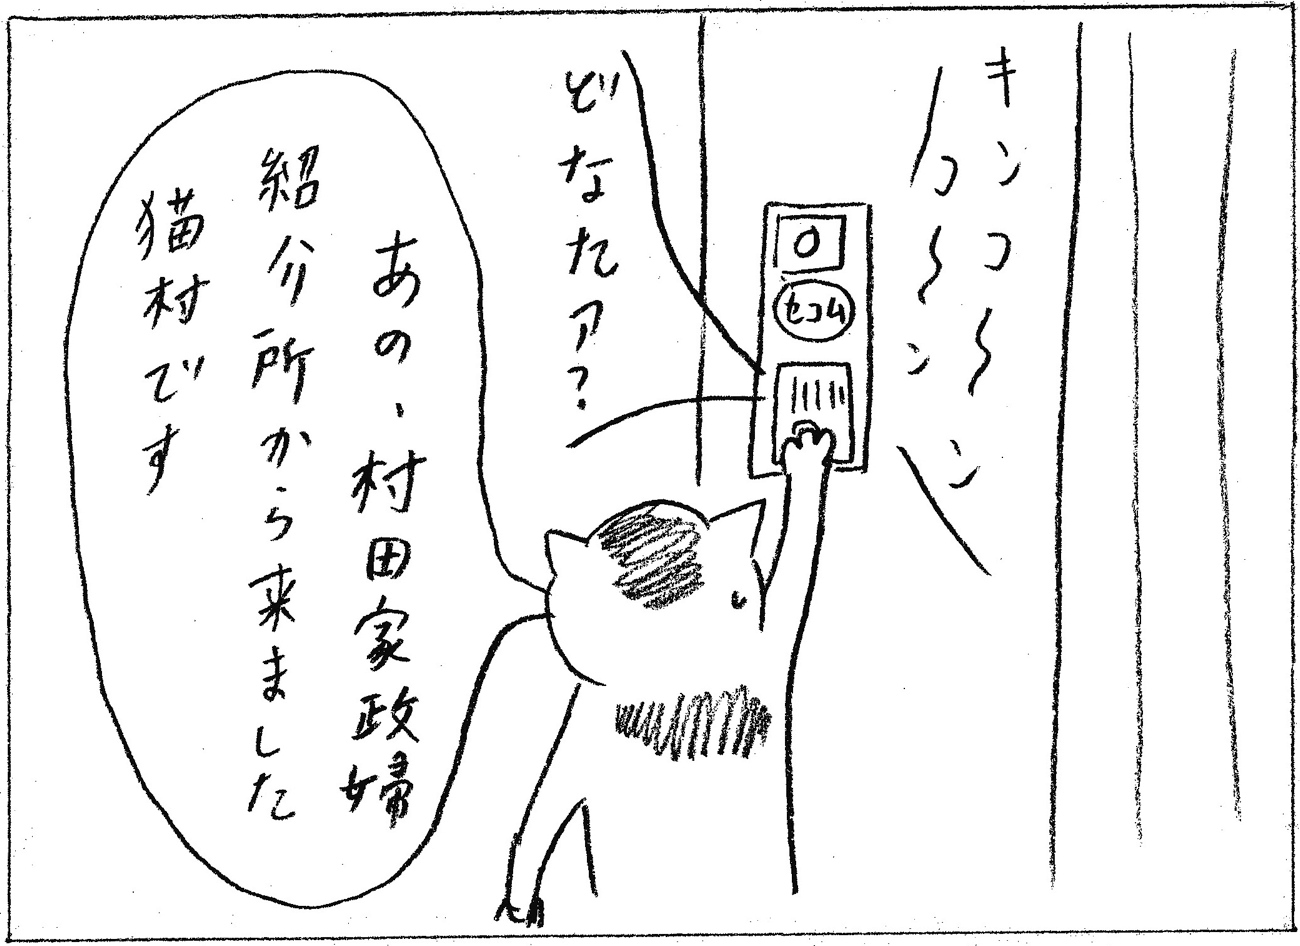 キンコ〜ン
コ〜ン
セコム
どなたァ?
あの、村田家政婦
紹介所から来ました
猫村です